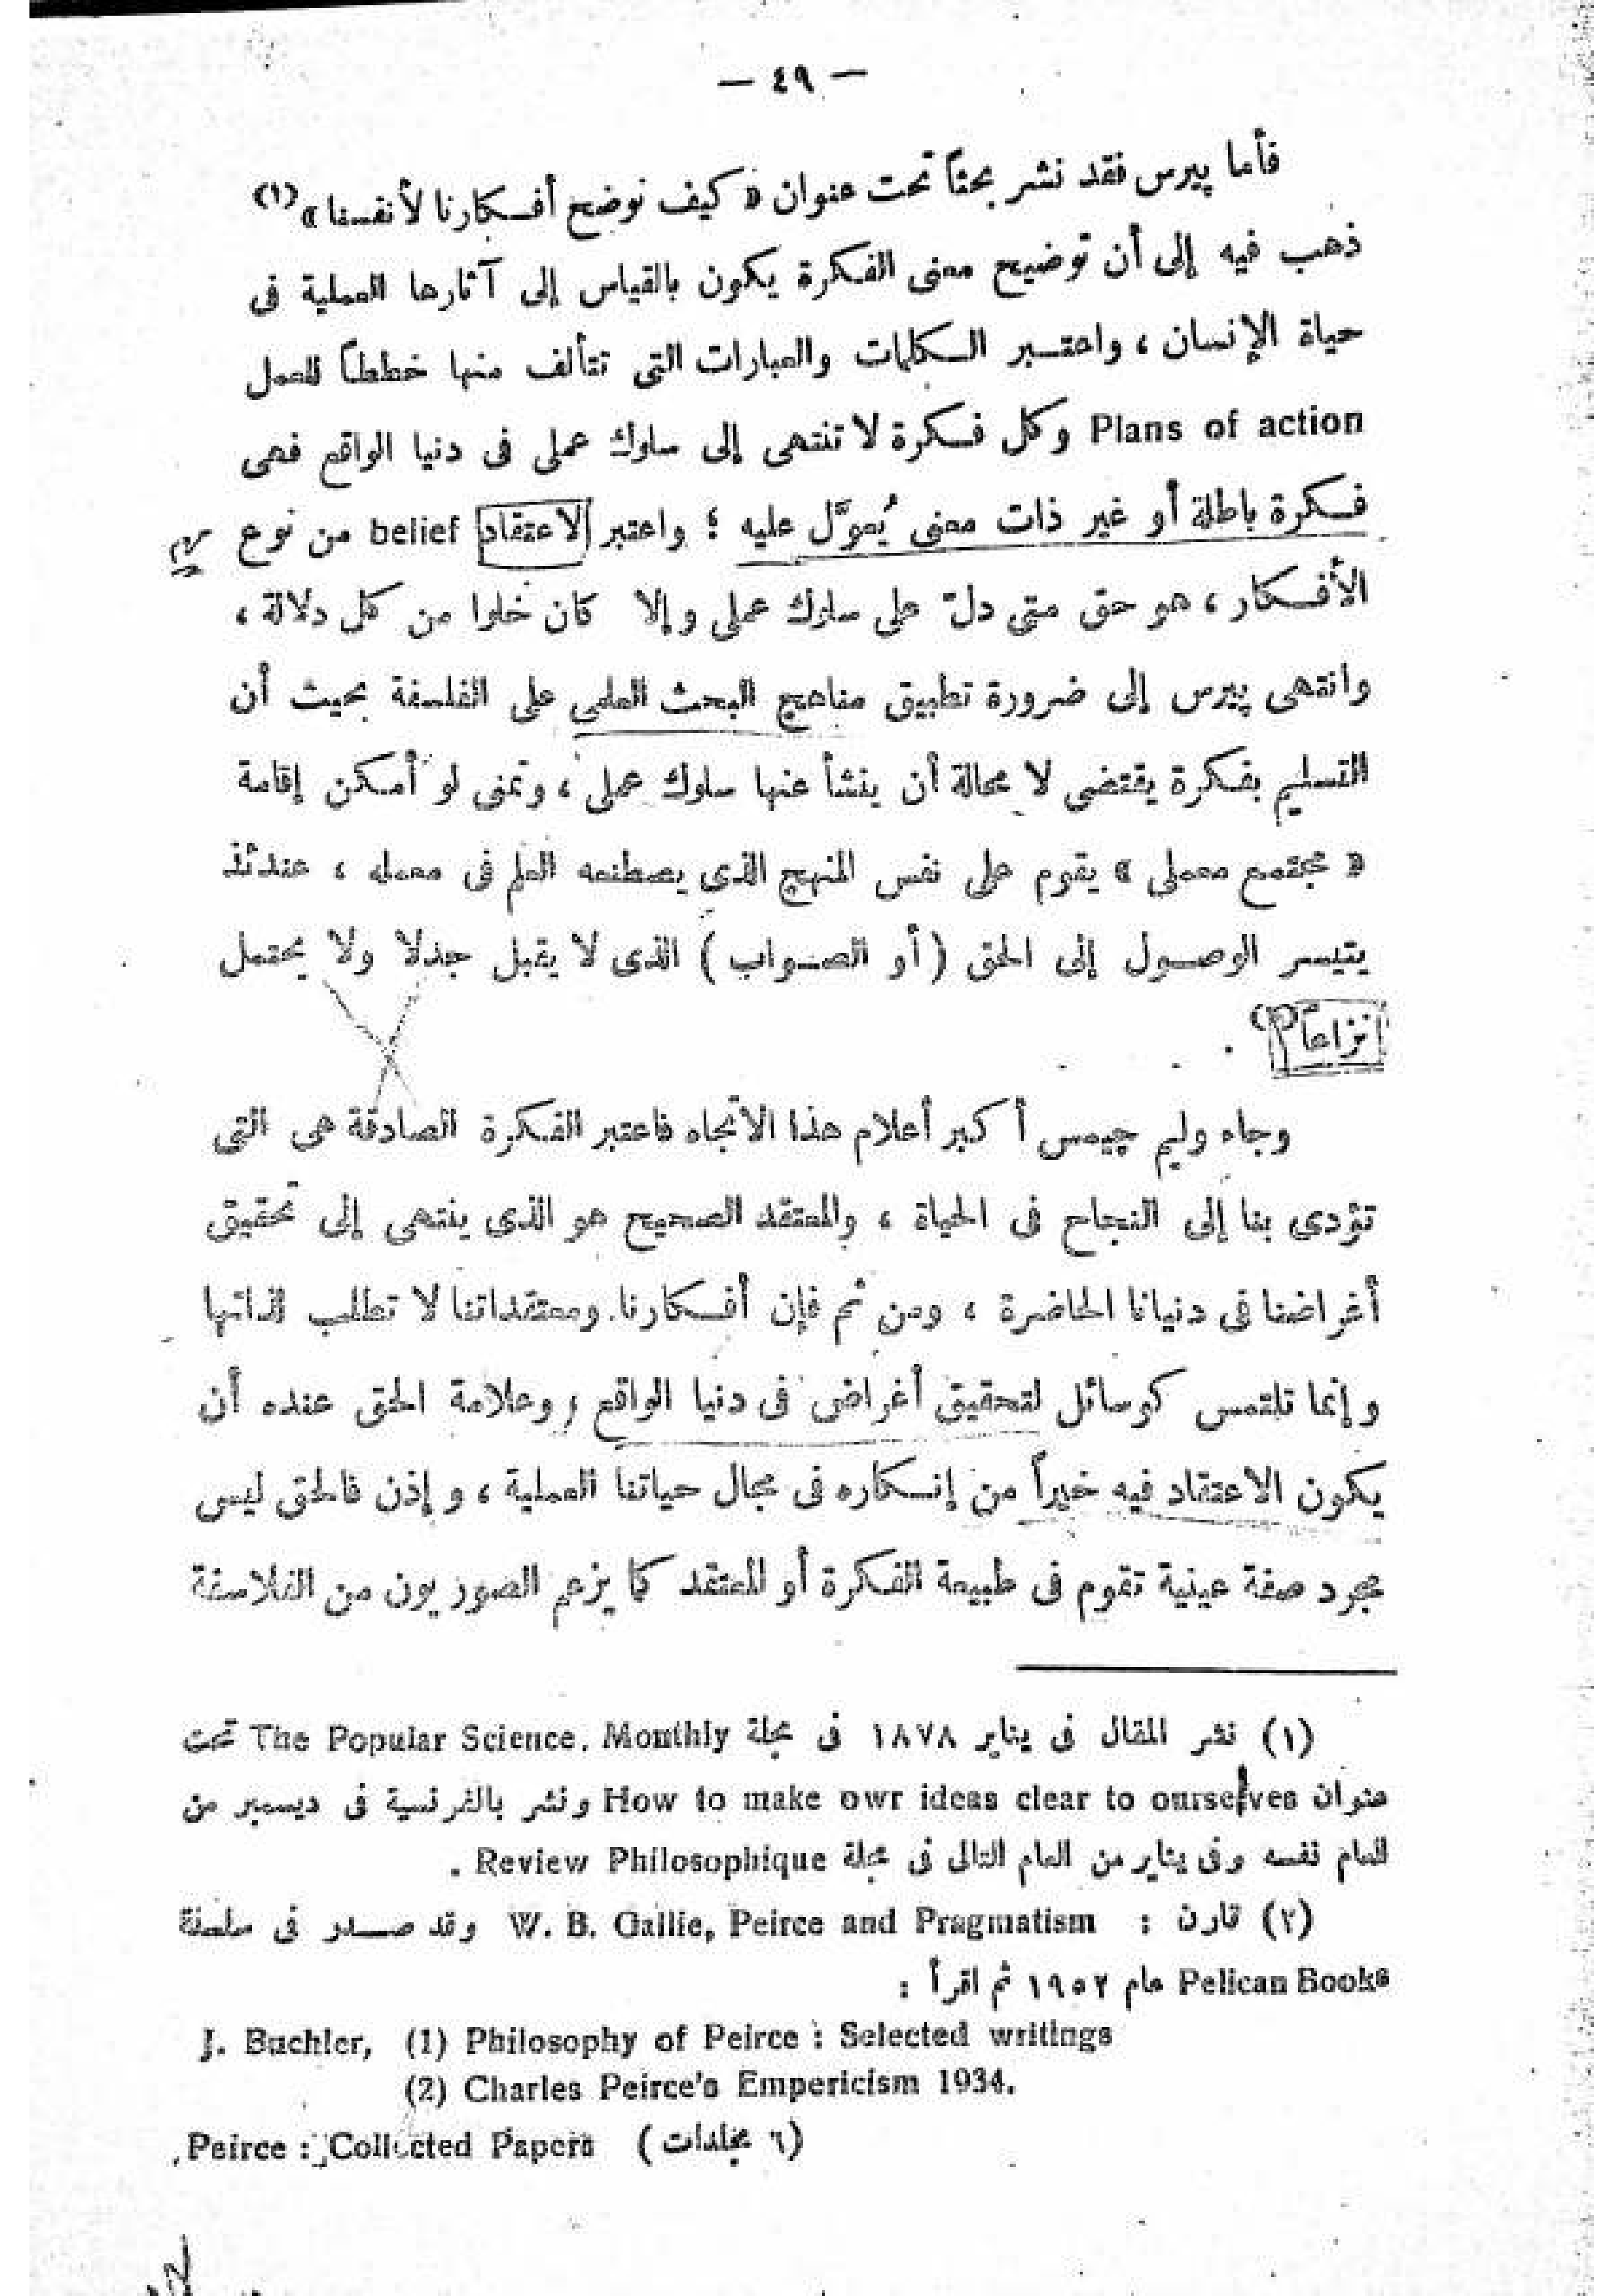 — ٤٩ —
فأما پيرس فقد نشر بحثاً تحت عنوان « كيف نوضح أفكارنا لأنفسنا » (١)
ذهب فيه إلى أن توضيح معنى الفكرة يكون بالقياس إلى آثارها العملية فى
حياة الإنسان ، واعتبر الكلمات والعبارات التى تتألف منها خططاً للعمل
Plans of action وكل فكرة لا تنتهى إلى سلوك عملى فى دنيا الواقع فهى
فكرة باطلة أو غير ذات معنى يُعوَّل عليه ؛ واعتبر الاعتقاد belief من نوع
الأفكار ، هو حق متى دلّ على سلوك عملى وإلا كان خلوا من كل دلالة ،
وانتهى پيرس إلى ضرورة تطبيق مناهج البحث العلمى على الفلسفة بحيث أن
التسليم بفكرة يقتضى لا محالة أن ينشأ عنها سلوك عملى ، وتمنى لو أمكن إقامة
« مجتمع معملى » يقوم على نفس المنهج الذى يصطنعه العلم فى معمله ، عندئذ
يتيسر الوصول إلى الحق ( أو الصواب ) الذى لا يقبل جدلا ولا يحتمل
نزاعاً (٢) .
وجاء وليم چيمس أكبر أعلام هذا الاتجاه فاعتبر الفكرة الصادقة هى التى
تؤدى بنا إلى النجاح فى الحياة ، والمعتقد الصحيح هو الذى ينتهى إلى تحقيق
أغراضنا فى دنيانا الحاضرة ، ومن ثم فإن أفكارنا ومعتقداتنا لا تطلب لذاتها
وإنما تلتمس كوسائل لتحقيق أغراض فى دنيا الواقع ، وعلامة الحق عنده أن
يكون الاعتقاد فيه خيراً من إنكاره فى مجال حياتنا العملية ، وإذن فالحق ليس
مجرد صفة عينية تقوم فى طبيعة الفكرة أو المعتقد كما يزعم الصوريون من الفلاسفة
(١) نشر المقال فى يناير ١٨٧٨ فى مجلة The Popular Science. Monthly تحت
عنوان How to make owr ideas clear to ourselves ونشر بالفرنسية فى ديسمبر من
العام نفسه وفى يناير من العام التالى فى مجلة Review Philosophique .
(٢) قارن : W. B. Gallie, Peirce and Pragmatism وقد صدر فى سلسلة
Pelican Books عام ١٩٥٢ ثم اقرأ :
J. Buchler, (1) Philosophy of Peirce : Selected writings
(2) Charles Peirce's Empericism 1934.
Peirce : Collected Papers (٦ مجلدات)